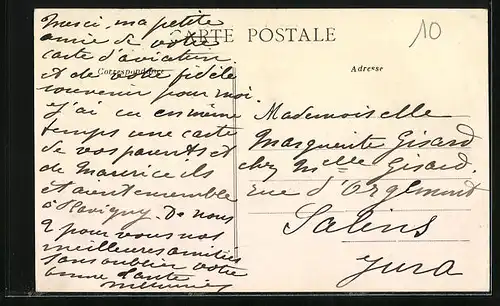 CARTE POSTALE
Correspondance
Adresse
10
Merci, ma petite
amie de votre
carte d'aviateur.
et de votre fidèle
souvenir pour moi.
J'ai eu en même
temps une carte
de vos parents et
de Maurice ils
étaient ensemble
à Flavigny. De nous
2 pour vous nos
meilleures amitiés
sans oublier votre
bonne tante
Mademoiselle
Marguerite Gisard
chez Melle Gisard.
rue d'Orgemont
Salins
Jura